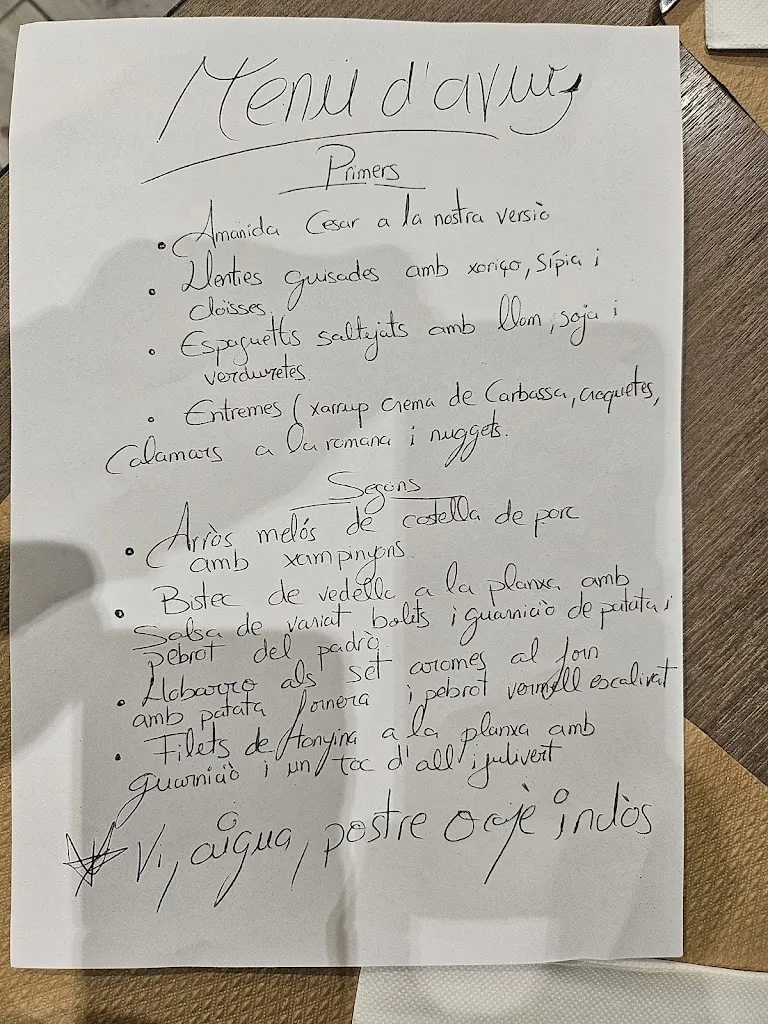 Menú d'avui
Primers
• Amanida Cesar a la nostra versiò
• Llenties guisades amb xoriço, Sípia i
cloïsses.
• Espaguettis saltejats amb llom, soja i
verduretes.
• Entremes (xarrup crema de Carbassa, croquetes,
Calamars a la romana i nuggets.
Segons
• Arròs melós de costella de porc
amb xampinyons.
• Bistec de vedella a la planxa amb
Salsa de variat bolets i guarniciò de patata i
pebrot del padrò
• Llobarro als set aromes al forn
amb patata fornera i pebrot vermell escalivat
• Filets de tonyina a la planxa amb
guarniciò i un toc d'all i julivert
Vi, aigua, postre o cafè inclòs